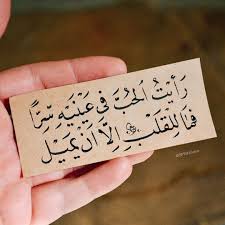 رَأَيْتُ الحُبَّ فِي عَيْنَيْهِ سِرًّا
فَمَا لِلْقَلْبِ إِلَّا أَنْ يَمِيْل